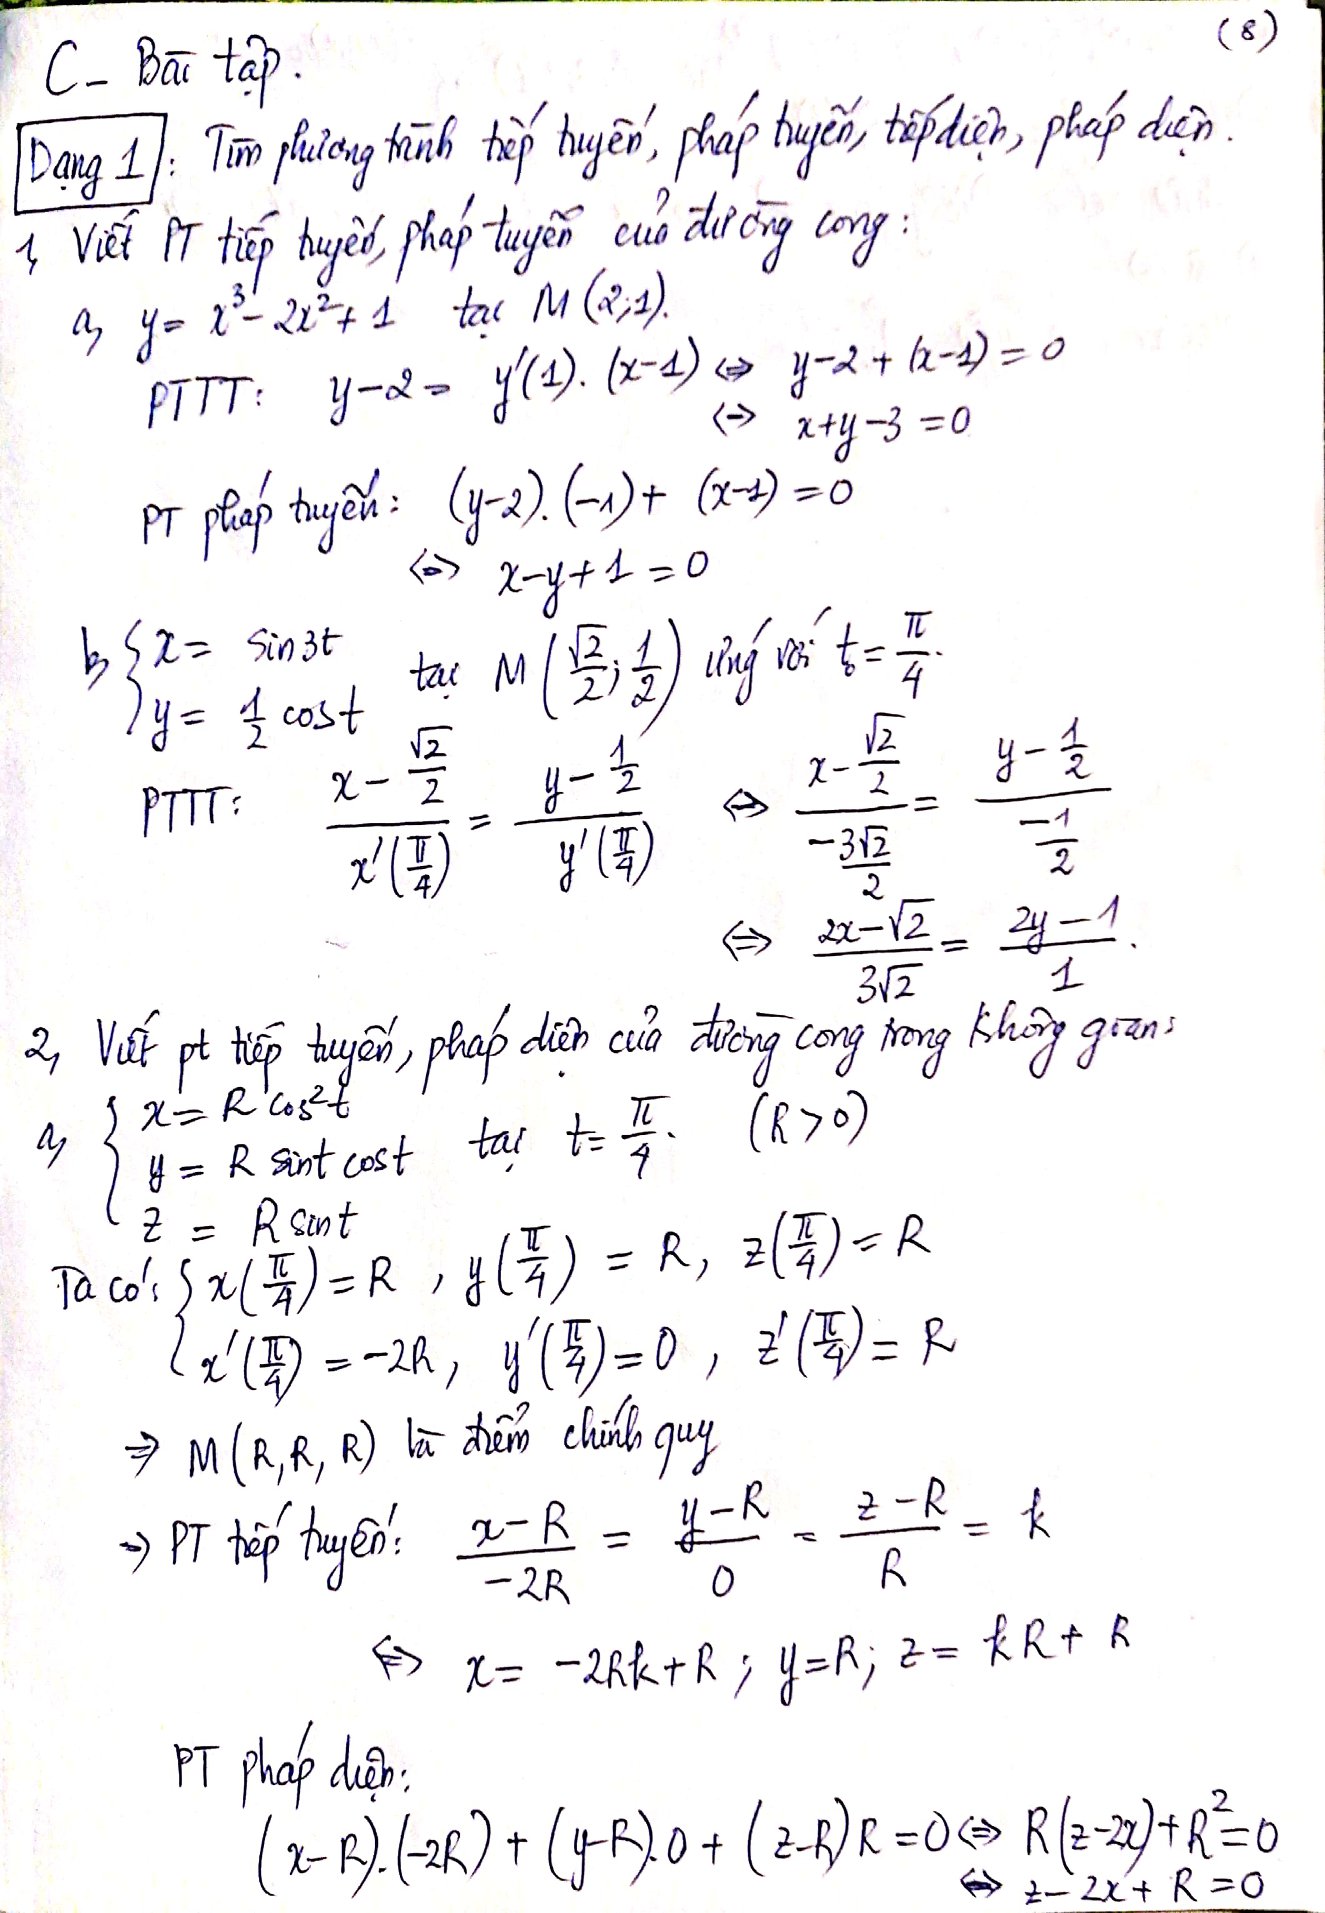 (8)
C- Bài tập.
Dạng 1: Tìm phương trình tiếp tuyến, pháp tuyến, tiếp diện, pháp diện.
1, Viết PT tiếp tuyến, pháp tuyến của đường cong:
a, y = x³ - 2x² + 1 tại M(2;1).
PTTT: y-2 = y'(1).(x-1) ⇔ y-2 + (x-1) = 0
⇔ x+y-3 = 0
PT pháp tuyến: (y-2).(-1) + (x-1) = 0
⇔ x-y+1 = 0
b, { x = sin3t
y = 1/2 cost tại M(√2/2; 1/2) ứng với t₀ = π/4.
PTTT: (x - √2/2)/(x'(π/4)) = (y - 1/2)/(y'(π/4)) ⇔ (x - √2/2)/(-3√2/2) = (y - 1/2)/(-1/2)
⇔ (2x-√2)/(3√2) = (2y-1)/1.
2, Viết pt tiếp tuyến, pháp diện của đường cong trong không gian:
a, { x = R cos²t
y = R sint cost tại t = π/4. (R>0)
z = R sint
Ta có: { x(π/4) = R, y(π/4) = R, z(π/4) = R
x'(π/4) = -2R, y'(π/4) = 0, z'(π/4) = R
⇒ M(R,R,R) là điểm chính quy
→ PT tiếp tuyến: (x-R)/(-2R) = (y-R)/0 = (z-R)/R = k
⇔ x = -2Rk+R; y=R; z = kR + R
PT pháp diện:
(x-R).(-2R) + (y-R).0 + (z-R)R = 0 ⇔ R(z-2x)+R² = 0
⇔ z-2x + R = 0